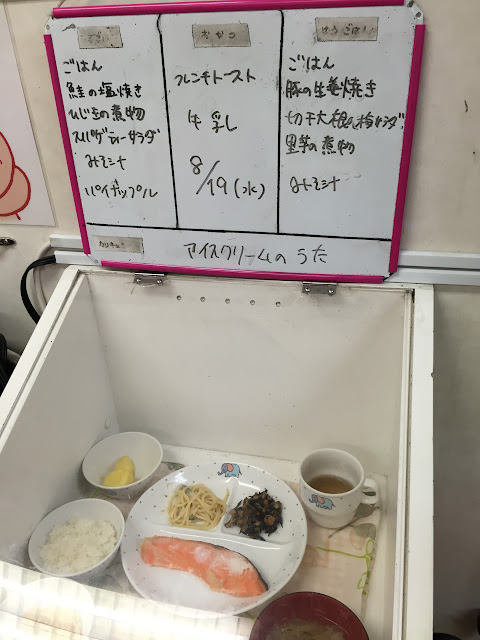 ごはん
鮭の塩焼き
ひじきの煮物
スパゲティーサラダ
みそ汁
パイナップル
おやつ
フレンチトースト
牛乳
8/19(水)
ゆうごはん
ごはん
豚の生姜焼き
切干大根の梅サダ
里芋の煮物
みそ汁
アイスクリームのうた